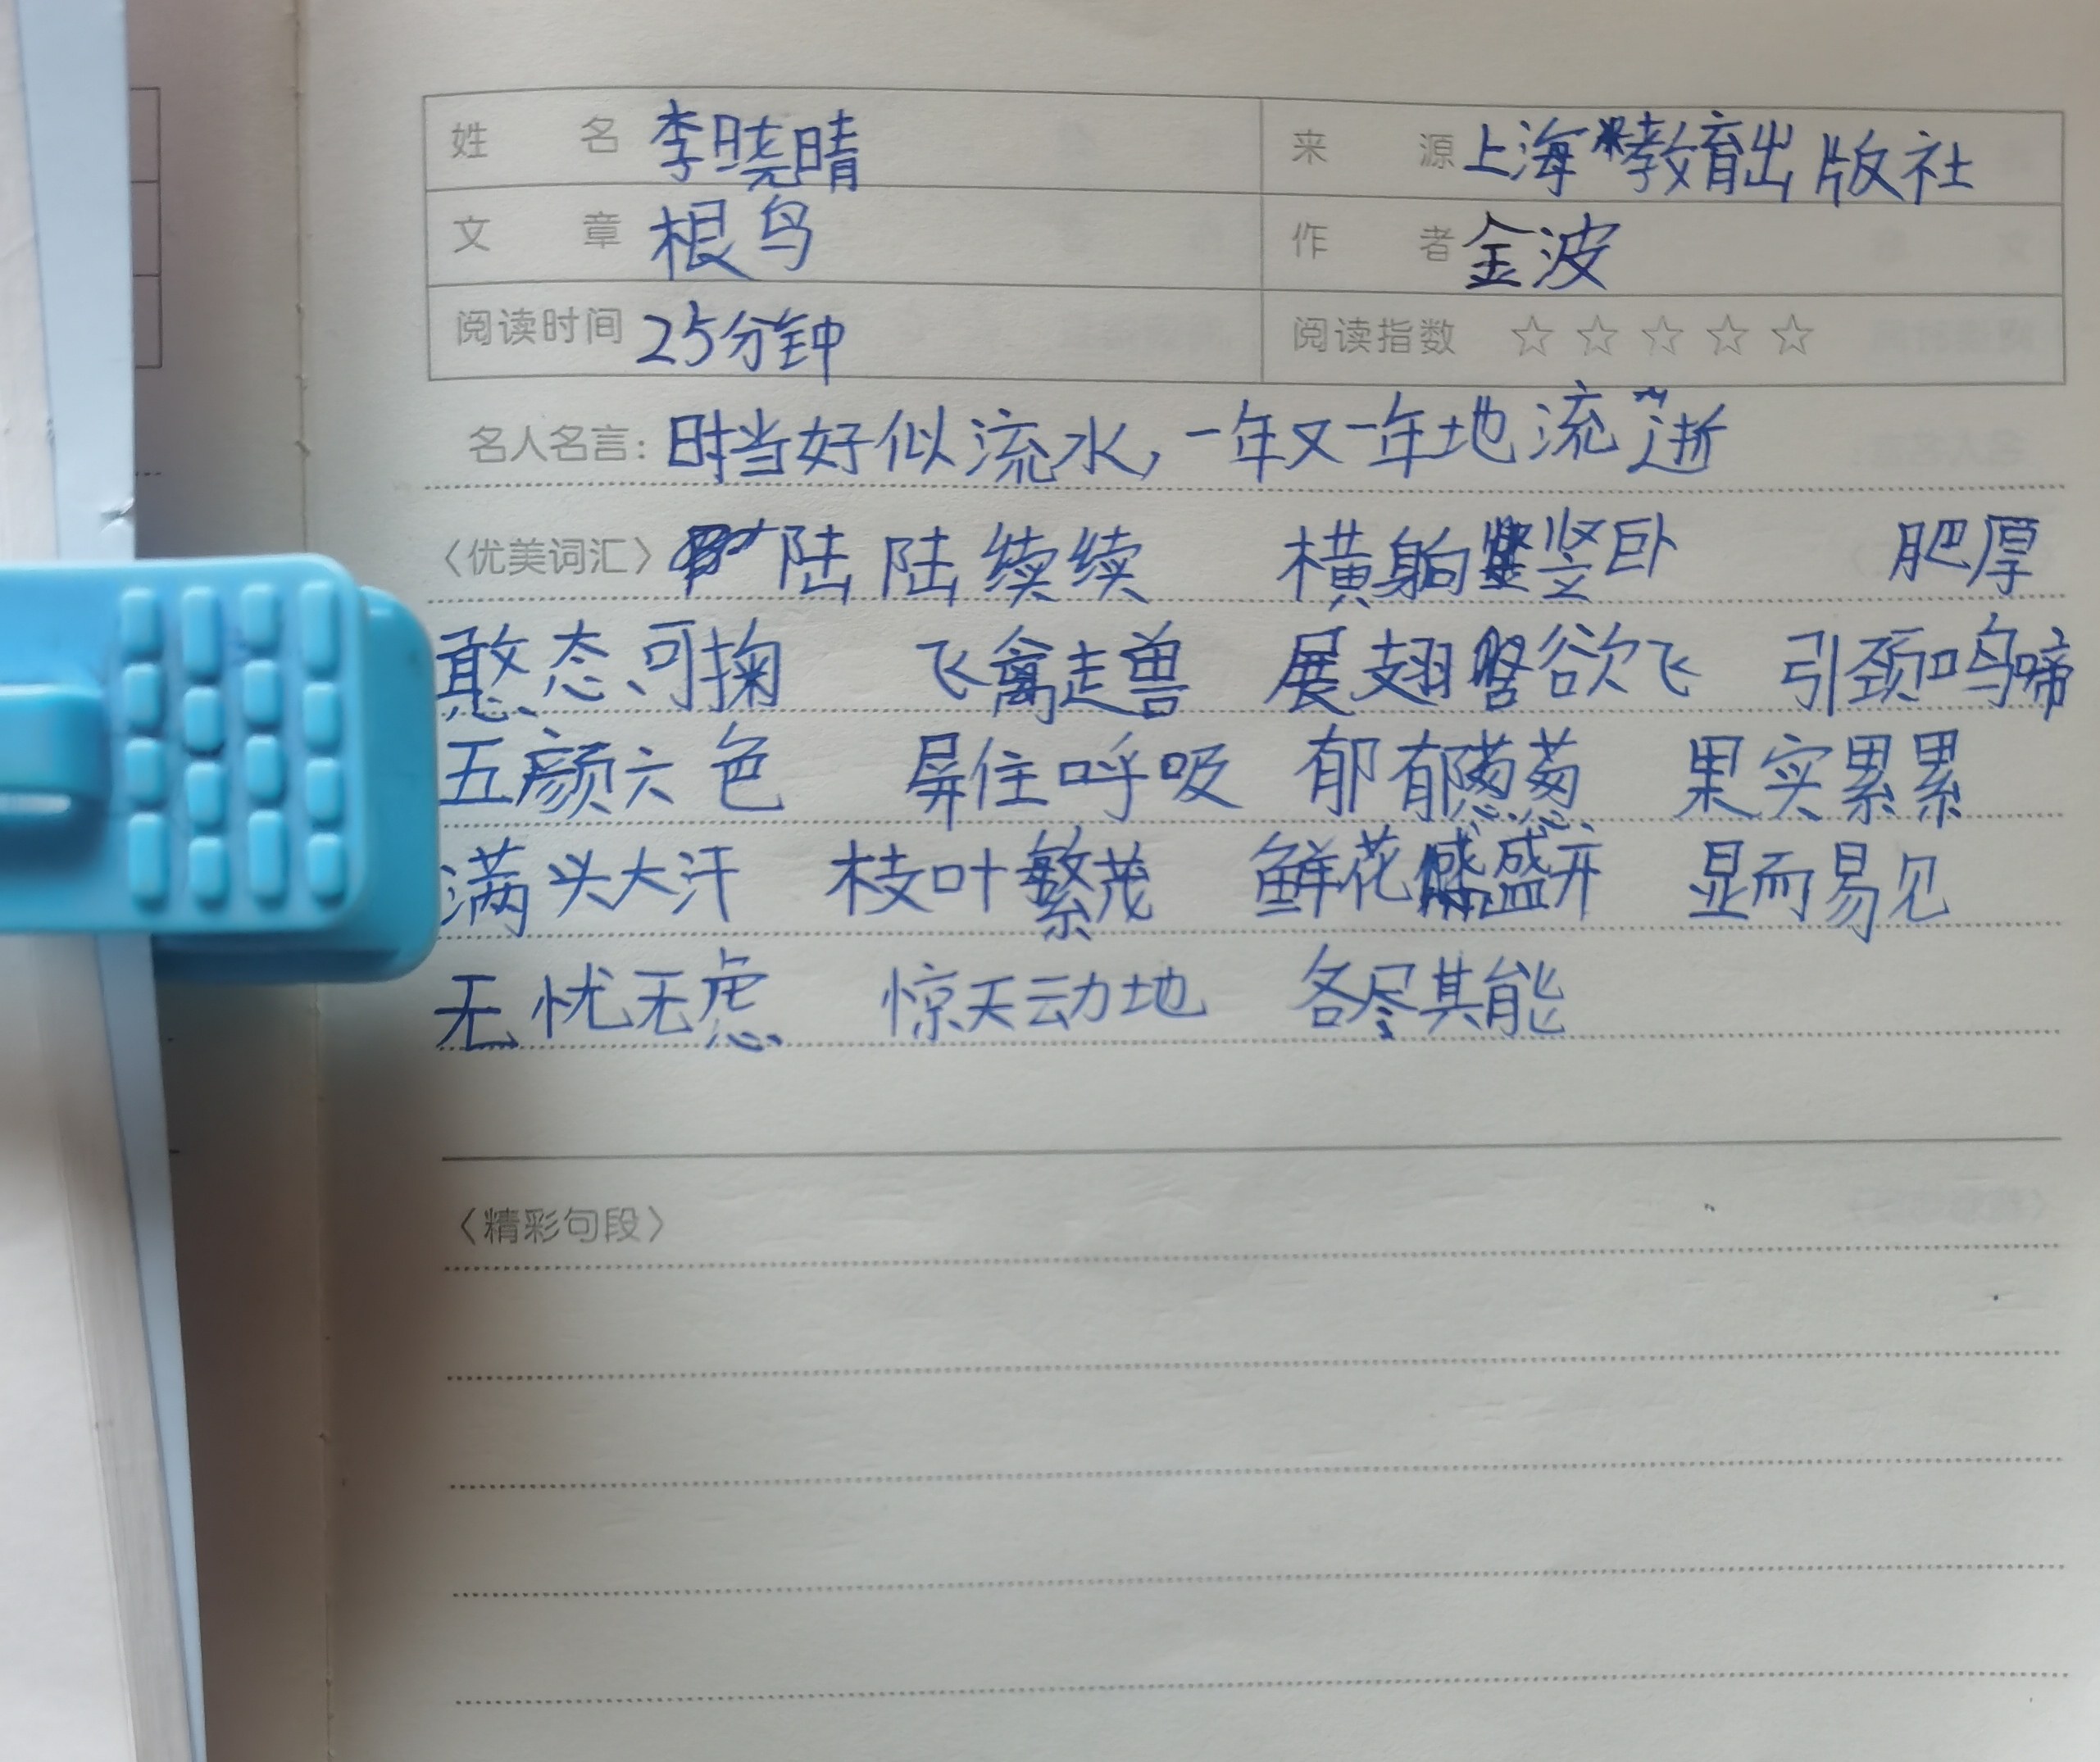 姓 名 李晓晴 来 源 上海教育出版社
文 章 根鸟 作 者 金波
阅读时间 25分钟 阅读指数 ☆☆☆☆☆
名人名言：时当好似流水，一年又一年地流逝
〈优美词汇〉陆陆续续 横躺竖卧 肥厚
憨态可掬 飞禽走兽 展翅欲飞 引颈鸣啼
五颜六色 屏住呼吸 郁郁葱葱 果实累累
满头大汗 枝叶繁茂 鲜花盛开 显而易见
无忧无虑 惊天动地 各尽其能
〈精彩句段〉